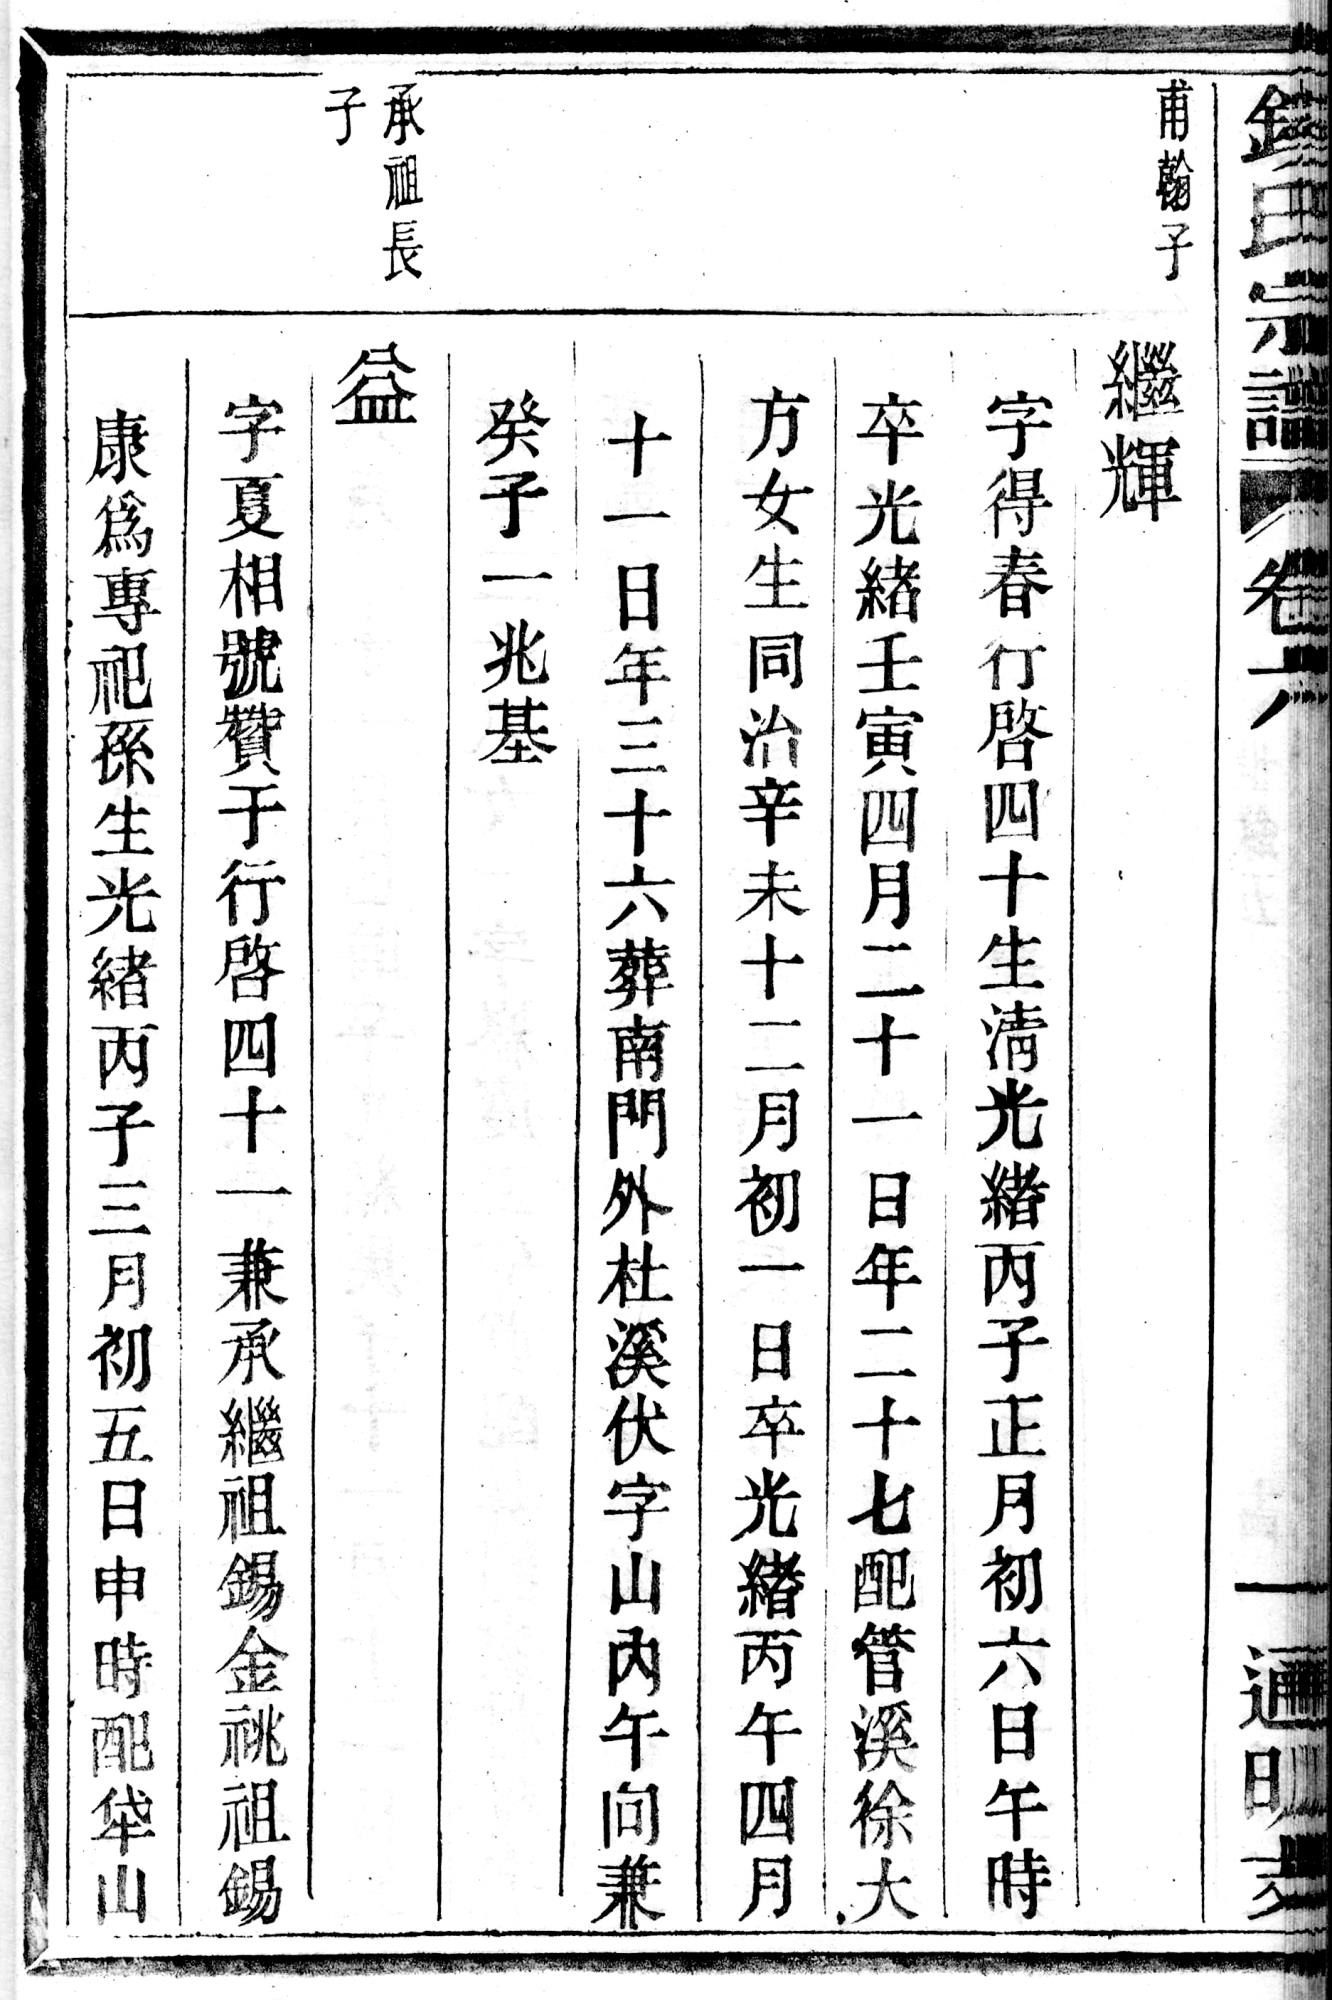 錢氏宗譜 卷六 一 通明支
甫翰子
繼輝
字得春行啓四十生淸光緖丙子正月初六日午時
卒光緖壬寅四月二十一日年二十七配管溪徐大
方女生同治辛未十二月初一日卒光緖丙午四月
十一日年三十六葬南門外杜溪伏字山丙午向兼
癸子一兆基
承祖長
子
益
字夏相號贊于行啓四十一兼承繼祖錫金祧祖錫
康爲專祀孫生光緖丙子三月初五日申時配牮山